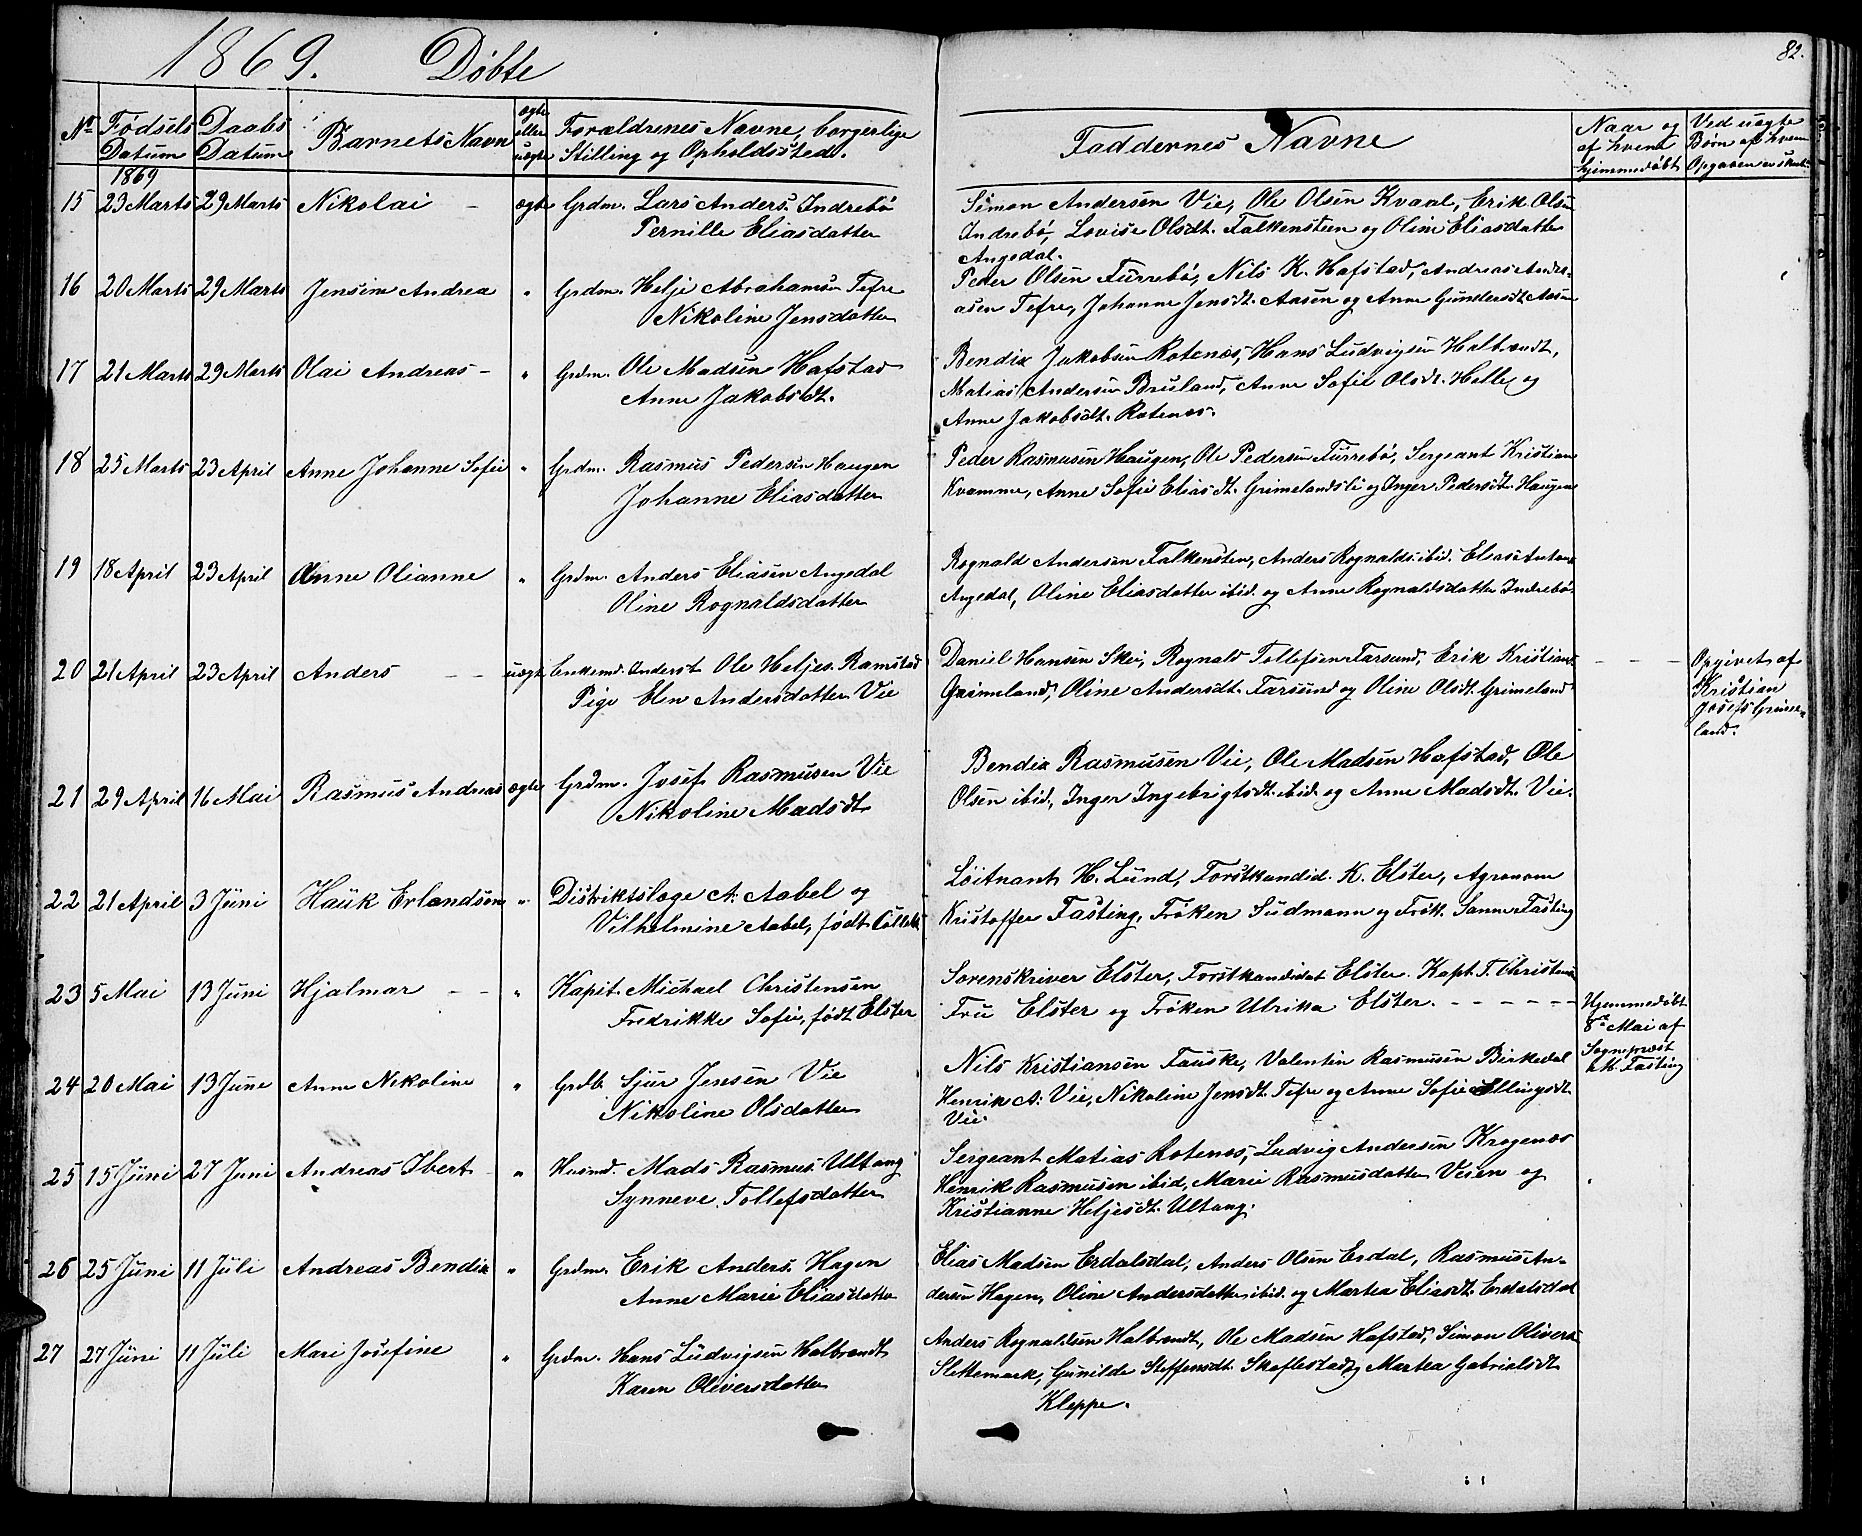 1869. Døbte
82.
No Fødsels Datum Daabs Datum Barnets Navn ægte eller uægte Forældrenes Navne, borgerlige Stilling og Opholdssted. Faddernes Navne Naar og af hvem hjemmedøbt Ved uægte Børn af hvem Opgaven er skeet
1869
15 23 Marts 29 Marts Nikolai - ægte Grdm. Lars Anders. Indrebø
Pernille Eliasdatter
Simon Andersen Vie, Ole Olsen Kvaal, Erik Olsen
Indrebø, Lovise Olsdt. Falkensteen og Oline Eliasdatter
Angedal.
16 20 Marts 29 Marts Jensine Andrea " Grdm. Helje Abrahamsen Tefre
Nikoline Jensdatter
Peder Olsen Furrebø, Nils K. Hafstad, Andreas Andre-
asen Tefre, Johanne Jensdt. Aasen og Anne Gundersdt. Aasen
17 21 Marts 29 Marts Olai Andreas - " Grdm. Ole Madsen Hafstad
Anne Jakobsdt.
Bendix Jakobsen Rotenæs, Hans Ludvigsen Halbrendt,
Matias Andersen Bruland, Anne Sofie Olsdt. Helle og
Anne Jakobsdt. Rotenæs.
18 25 Marts 23 April Anne Johanne Sofie " Grdm. Rasmus Pedersen Haugen
Johanne Eliasdatter
Peder Rasmusen Haugen, Ole Pedersen Furrebø, Sergeant Kristian
Kvamme, Anne Sofie Eliasdt. Grimelandsli og Inger Pedersdt. Haugen
19 18 April 23 April Anne Olianne " Grdm. Anders Eliasen Angedal
Oline Rognaldsdatter
Rognald Andersen Falkensten, Anders Rognalds. ibid. Elias Antons
Angedal, Oline Eliasdatter ibid. og Anne Rognaldsdatter Indrebø.
20 21 April 23 April Anders - - uægt Enkemd. Inderst Ole Heljes. Ramstad
Pige Elen Andersdatter Vie
Daniel Hansen Skei, Rognald Tollefsen Farsund, Erik Kristians.
Grimeland, Oline Andersdt. Farsund og Oline Olsdt. Grimeland
- - - Opgivet af
Kristian
Josefs. Grime-
land.
21 29 April 16 Mai Rasmus Andreas ægte Grdm. Josef Rasmusen Vie
Nikoline Madsdt.
Bendix Rasmusen Vie, Ole Madsen Hafstad, Ole
Olsen ibid., Inger Ingebrigtsdt. ibid. og Anne Madsdt. Vie.
22 21 April 3 Juni Hauk Erlandsen " Distriktslæge A. Aabel og
Vilhelmine Aabel, født
Löitnant H. Lund, Forstkandid. K. Elster, Agronom
Kristoffer Fasting, Frøken Sudmann og Frøk. Sanne Fasting
23 5 Mai 13 Juni Hjalmar - - " Kapit. Michael Christensen
Fredrikke Sofie, født Elster
Sorenskriver Elster, Forstkandidat Elster. Kapt. T. Christensen
Fru Elster og Frøken Ulrika Elster. - - - - - -
Hjemmedøbt
8de Mai af
Sognepræst
Fasting
24 20 Mai 13 June Anne Nikoline " Grdb. Sjur Jensen Vie
Nikoline Olsdatter
Nils Kristiansen Fauske, Valentin Rasmusen Birkedal
Henrik A. Vie, Nikoline Jensdt. Tefre og Anne Sofie Ellingsdt.
Vie.
25 15 Juni 27 Juni Andreas Ibert " Husmd. Mads Rasmus. Ultang
Synneve Tollefsdatter
Sergeant Matias Rotenæs, Ludvig Andersen Krogenæs
Henrik Rasmusen ibid, Marie Rasmusdatter Veien og
Kristianne Heljesdt. Ultang.
26 25 Juni 11 Juli Andreas Bendix " Grdm. Erik Anders. Hagen
Anne Marie Eliasdatter
Elias Madsen Erdalsdal, Anders Olsen Erdal, Rasmus An-
dersen Hagen, Oline Andersdatter ibid. og Martea Eliasdt. Erdalsdal
27 27 Juni 11 Juli Mari Josefine " Grdm. Hans Ludvigsen Halbrendt
Karen Oliversdatter
Anders Rognaldsen Halbrendt, Ole Madsen Hafstad, Simon Olivers.
Slettemark, Gunilde Steffensdt. Skaflestad og Martea Gabrielsdt.
Kleppe.